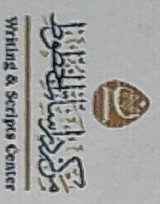 مركز دراسات الخطوط
Writing & Scripts Center